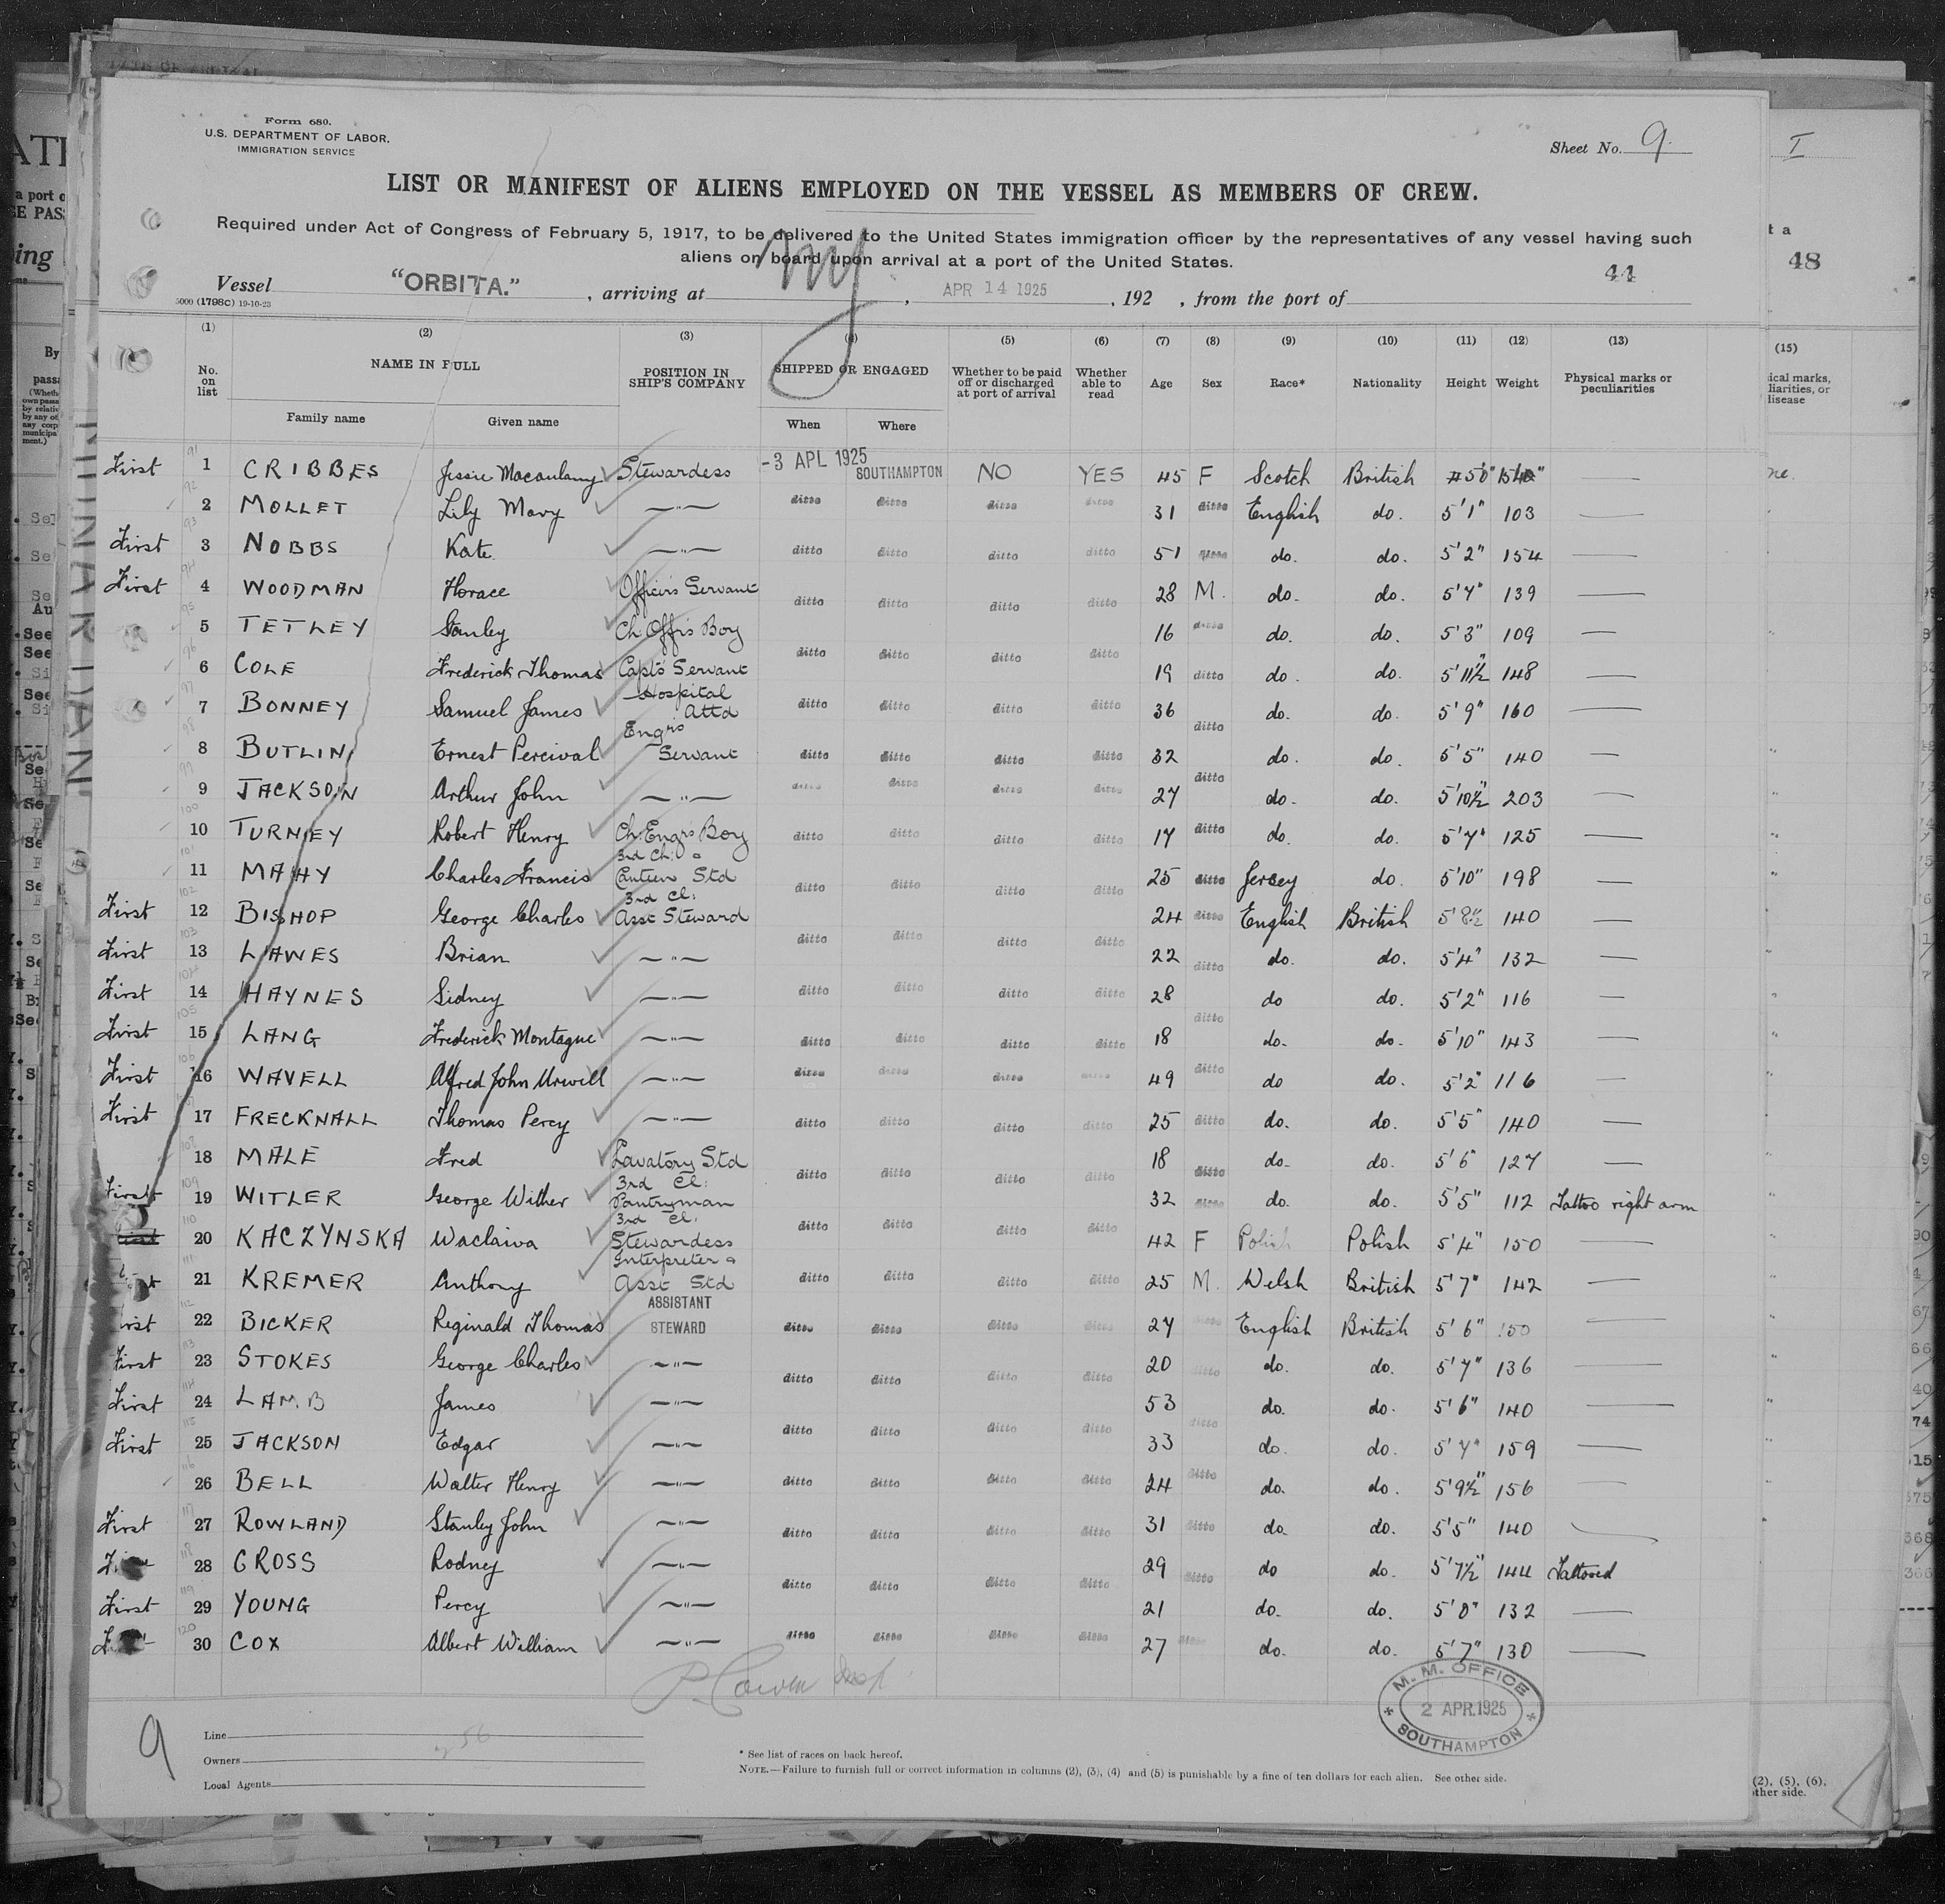 Form 680.
U.S. DEPARTMENT OF LABOR.
IMMIGRATION SERVICE
Sheet No. 9.
LIST OR MANIFEST OF ALIENS EMPLOYED ON THE VESSEL AS MEMBERS OF CREW.
Required under Act of Congress of February 5, 1917, to be delivered to the United States immigration officer by the representatives of any vessel having such
aliens on board upon arrival at a port of the United States.
44
Vessel "ORBITA." , arriving at ny , APR 14 1925 , 192 , from the port of
5000 (1798C) 19-10-23
(1) (2) (3) (4) (5) (6) (7) (8) (9) (10) (11) (12) (13)
No. on list NAME IN FULL Family name Given name POSITION IN SHIP'S COMPANY SHIPPED OR ENGAGED When Where Whether to be paid off or discharged at port of arrival Whether able to read Age Sex Race* Nationality Height Weight Physical marks or peculiarities
First 1 CRIBBES Jessie Stewardess -3 APL 1925 SOUTHAMPTON NO YES 45 F Scotch British
2 MOLLET Lily Mary —"— ditto ditto ditto ditto 31 ditto English do. 5'1" 103 —
First 3 NOBBS Kate —"— ditto ditto ditto ditto 51 ditto do. do. 5'2" 154 —
First 4 WOODMAN Horace Officers Servant ditto ditto ditto ditto 28 M. do. do. 5'7" 139 —
5 TETLEY Stanley Ch Offrs Boy ditto ditto ditto ditto 16 ditto do. do. 5'3" 109 —
6 COLE Frederick Thomas Capt's Servant ditto ditto ditto ditto 19 ditto do. do. 5'11½" 148 —
7 BONNEY Samuel James Hospital Attd ditto ditto ditto ditto 36 ditto do. do. 5'9" 160 —
8 BUTLIN Ernest Percival Engrs Servant ditto ditto ditto ditto 32 ditto do. do. 5'5" 140 —
9 JACKSON Arthur John —"— ditto ditto ditto ditto 27 ditto do. do. 5'10½" 203 —
10 TURNEY Robert Henry Ch: Engrs Boy ditto ditto ditto ditto 17 ditto do. do. 5'7" 125 —
11 MAHY Charles Francis 3rd Cl: Canteen Std ditto ditto ditto ditto 25 ditto Jersey do. 5'10" 198 —
First 12 BISHOP George Charles 3rd Cl: Asst Steward ditto ditto ditto ditto 24 ditto English British 5'8½ 140 —
First 13 LAWES Brian —"— ditto ditto ditto ditto 22 ditto do. do. 5'4" 132 —
First 14 HAYNES Sidney —"— ditto ditto ditto ditto 28 ditto do do. 5'2" 116 —
First 15 LANG Frederick Montague —"— ditto ditto ditto ditto 18 do. do. 5'10" 143 —
First 16 WAVELL Alfred John —"— ditto ditto ditto ditto 49 ditto do do. 5'2" 116 —
First 17 FRECKNALL Thomas Percy —"— ditto ditto ditto ditto 25 ditto do. do. 5'5" 140 —
18 MALE Fred Lavatory Std ditto ditto ditto ditto 18 ditto do. do. 5'6" 127 —
First 19 WITLER George Wither 3rd Cl: Pantryman ditto ditto ditto ditto 32 ditto do. do. 5'5" 112 Tattoo right arm
20 KACZYNSKA Waclaiva 3rd Cl. Stewardess ditto ditto ditto ditto 42 F Polish Polish 5'4" 150 —
21 KREMER Anthony Interpreter & Asst Std ditto ditto ditto ditto 25 M. Welsh British 5'7" 142 —
First 22 BICKER Reginald Thomas ASSISTANT STEWARD ditto ditto ditto ditto 27 ditto English British 5'6" 150 —
First 23 STOKES George Charles —"— ditto ditto ditto ditto 20 ditto do. do. 5'7" 136 —
First 24 LAMB James —"— ditto ditto ditto ditto 53 ditto do. do. 5'6" 140 —
First 25 JACKSON Edgar —"— ditto ditto ditto ditto 33 do. do. 5'7" 159 —
26 BELL Walter Henry —"— ditto ditto ditto ditto 24 ditto do. do. 5'9½" 156 —
First 27 ROWLAND Stanley John —"— ditto ditto ditto ditto 31 ditto do. do. 5'5" 140 —
28 GROSS Rodney —"— ditto ditto ditto ditto 29 ditto do do. 5'7½" 144 Tattooed
First 29 YOUNG Percy —"— 21 do. do. 5'8" 132 —
30 COX Albert William —"— ditto ditto ditto ditto 27 ditto do. do. 5'7" 130 —
M. M. OFFICE
2 APR. 1925
SOUTHAMPTON
9
Line
Owners
Local Agents
* See list of races on back hereof.
NOTE.—Failure to furnish full or correct information in columns (2), (3), (4) and (5) is punishable by a fine of ten dollars for each alien. See other side.
I
48
(15)
(2), (5), (6),
other side.